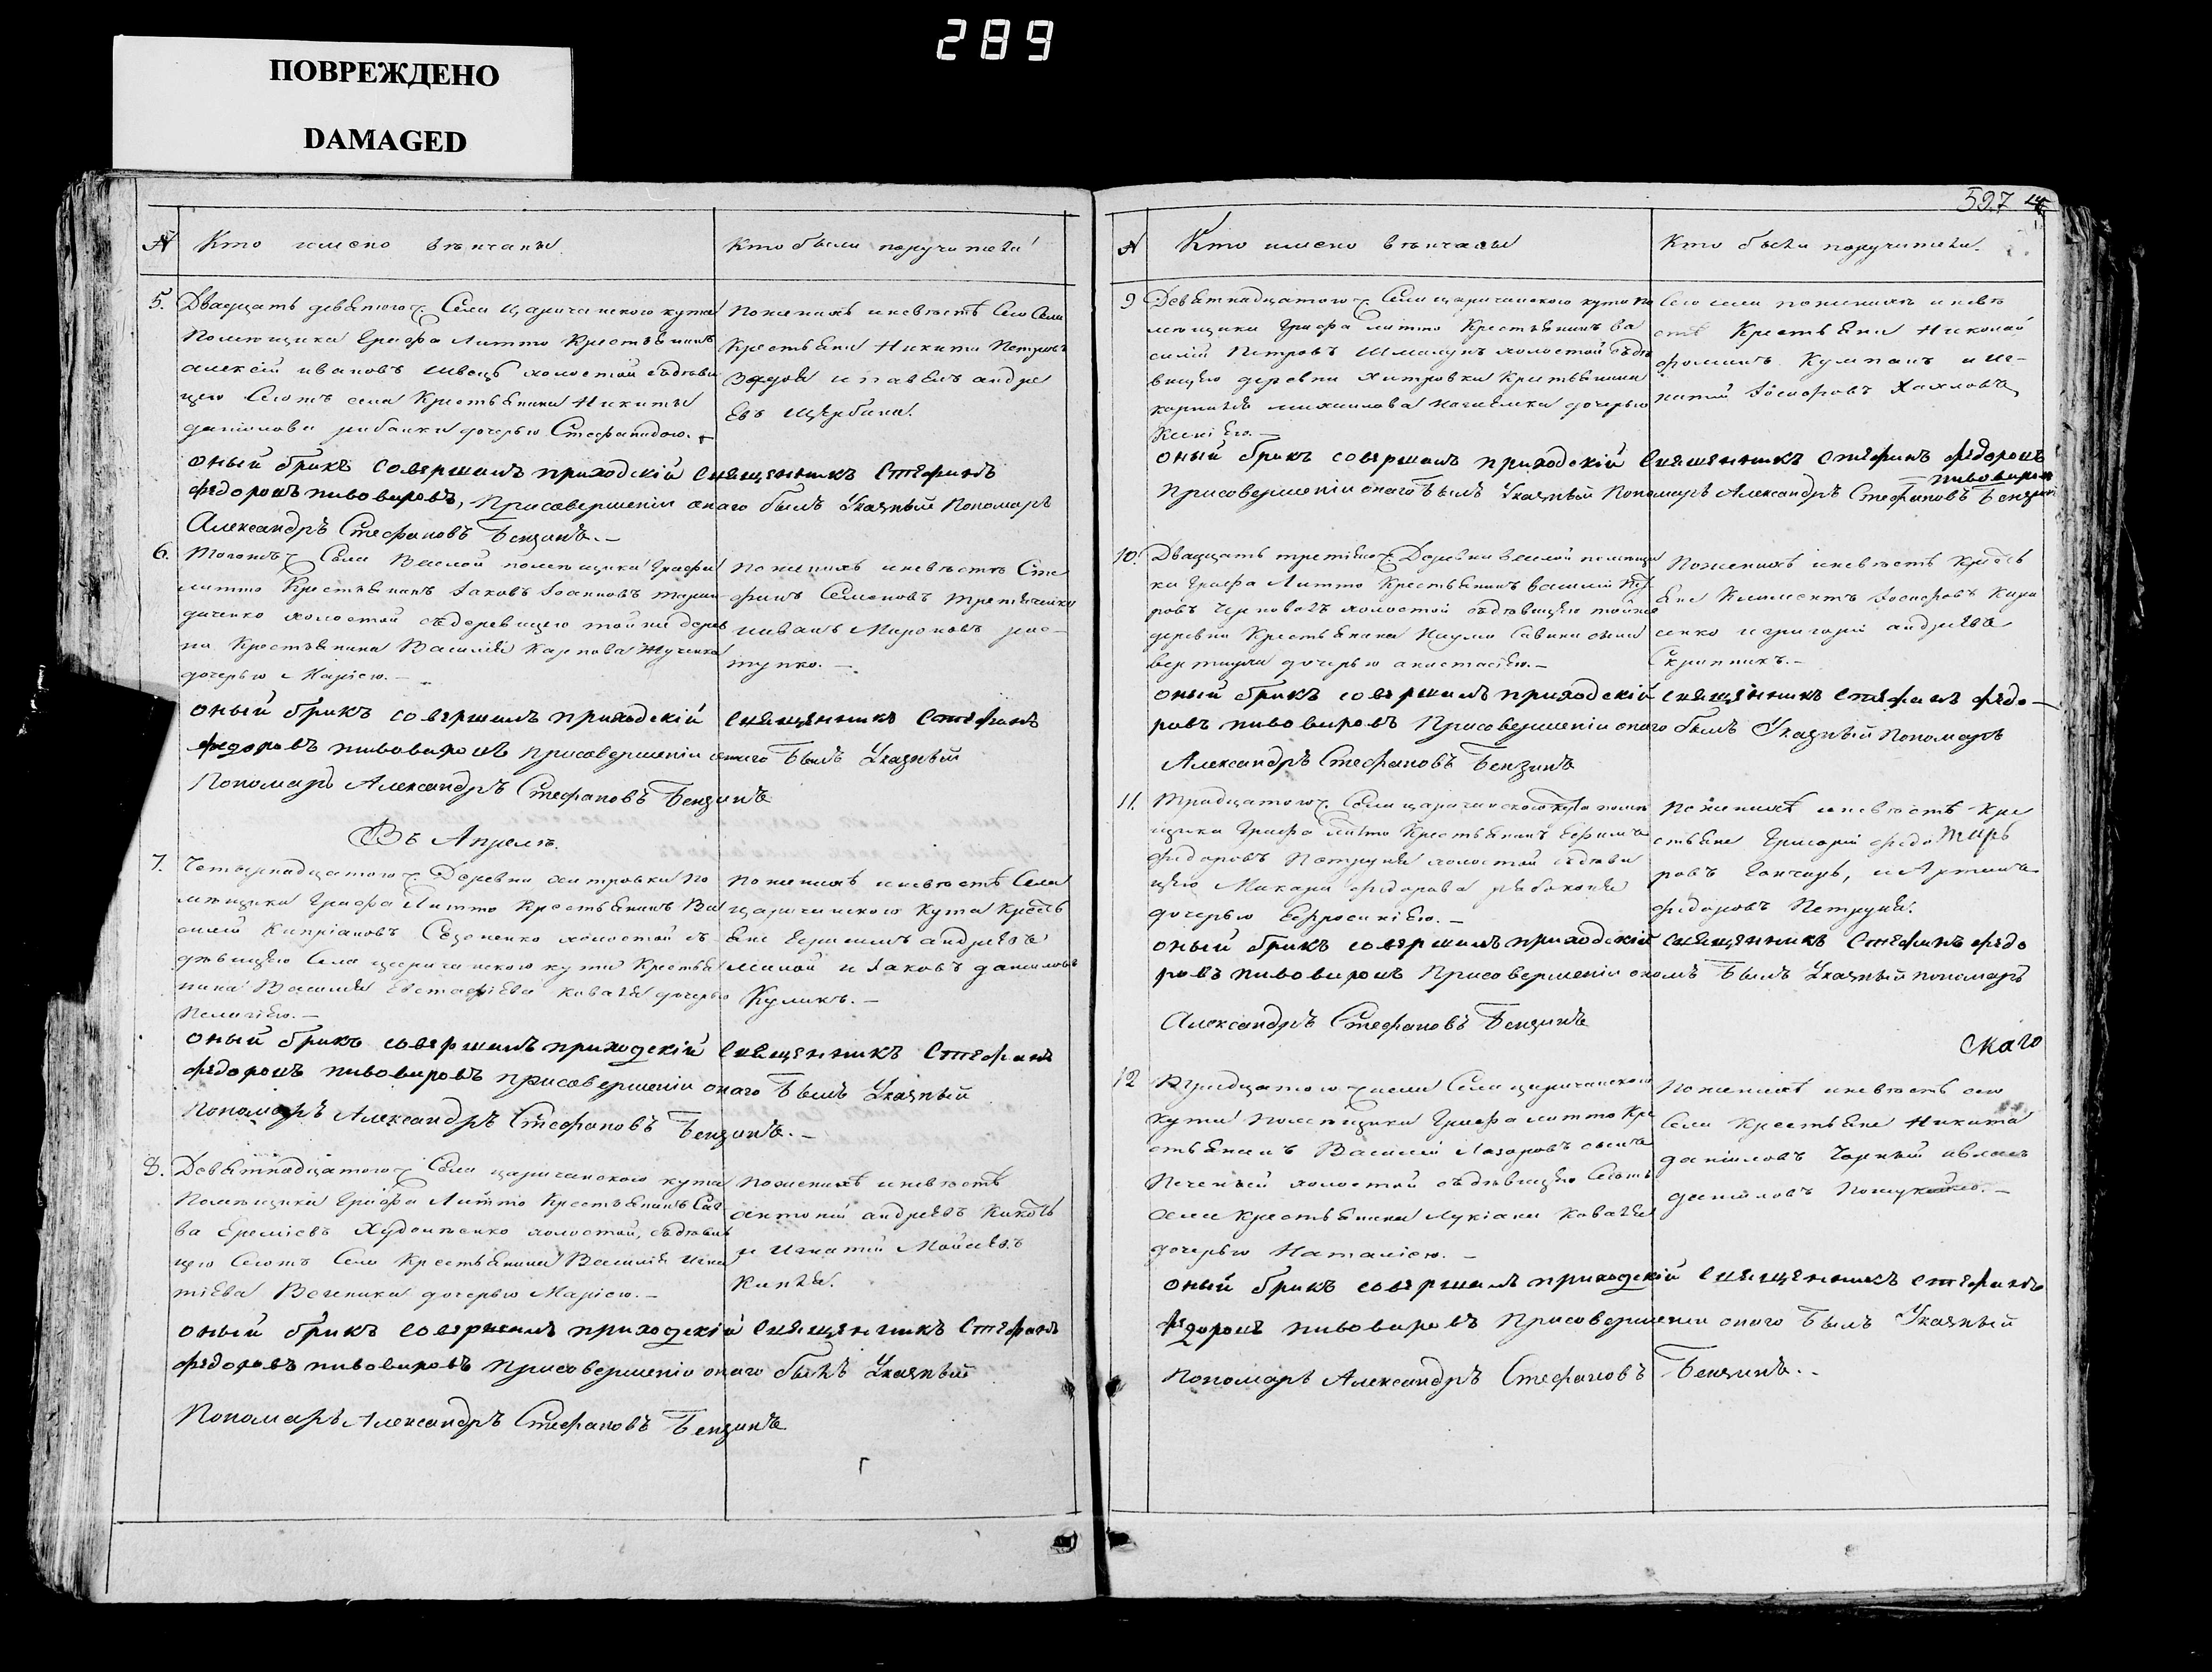 289
ПОВРЕЖДЕНО
DAMAGED
№ Кто имено венчаны
Кто были поручители
5. Двадцать девятого ч. Села Царичанского кута
Помещика Графа Литто Крестьянинъ
алексій ивановъ швецъ холостой съдеви
цею Сегожъ села Крестьянина Никиты
даніилова рибалки дочерью Стефанидою. –
Поженихѣ иневѣстѣ Сего Села
Крестьяни Никита Петровъ
и павелъ андре
евъ щербина.
оный бракъ совершалъ приходскій священникъ Стефанъ
федоровъ пивоваровъ, Присовершеніи онаго былъ Указный Пономарь
Александръ Стефановъ Бензинъ. –
6. Тогожъ ч. Села Вислой помещика Графа
литто Крестьянинъ Іаковъ Іоанновъ
холостой съдевицею тойже дерев
ни Крестьянина Василія Карпова
дочерью Маріею. –
Поженихѣ иневѣстѣ Сте
фанъ Семеновъ
ииванъ Мироновъ рас
тупко. –
оный бракъ совершалъ приходскій священникъ Стефанъ
федоровъ пивоваровъ присовершеніи онаго Былъ Указный
Пономарь Александръ Стефановъ Бензинъ
Въ Апреле.
7. Четырнадцатого ч. Деревни хитровки по
мещика Графа Литто Крестьянинъ Ва
силей Кипріановъ холостой съ
девицею Села царичанского кута Крестья
нина Василія Евстафіева Коваля дочерью
Пелагіею. –
Поженихѣ иневѣстѣ Села
царичанского Кута Кресть
яне андреевъ
и Іаковъ даниловъ
Куликъ. –
оный бракъ совершалъ приходскій священникъ Стефанъ
федоровъ пивоваровъ присовершеніи онаго Былъ Указный
Пономарь Александръ Стефановъ Бензинъ. –
8. Девятнадцатого ч. Села царичанского кута
Помещика Графа Литто Крестьянинъ Сав
ва Ереміевъ холостой, съдеви
цею Сегожъ Села Крестьянина Василія Игна
тіева дочерью Маріею. –
Поженихѣ иневѣстѣ
антоній андреевъ
и Игнатій Мойсеевъ
оный бракъ совершалъ приходскій священникъ Стефанъ
федоровъ пивоваровъ присовершеніи онаго былъ Указный
Пономарь Александръ Стефановъ Бензинъ
527
№ Кто имено венчаны
Кто были поручители.
9 Девятнадцатого ч. Села царичанского кута по
мещика Графа литто Крестьянинъ ва
силій Петровъ холостой съде
вицею деревни хитровки Крестьянина
корнилія михаилова дочерью
Ксеніею. –
Сего села поженихѣ иневѣ
стѣ Крестьяни Николай
фоминъ Кумпанъ и Иг-
натій Іосифовъ
оный бракъ совершалъ приходскій священникъ стефанъ федоровъ
пивоваровъ
Присовершеніи онаго Былъ Указный Пономарь Александръ Стефановъ Бензинъ
10. Двадцать третіего ч. Деревни вислой помещи
ка Графа Литто Крестьянинъ василій
холостой съдевицею тойже
деревни Крестьянина Наума Савина
дочерью анастасіею. –
Поженихѣ иневѣстѣ Кресть
яне Климентъ Іосифовъ
сенко игригорій андреевъ
Скрипникъ. –
оный бракъ совершалъ приходскій священникъ стефанъ федо–
ровъ пивоваровъ Присовершеніи онаго былъ Указный Пономарь
Александръ Стефановъ Бензинъ
11. Тридцатого ч. Села царичанского Кута поме
щика Графа Литто Крестьянинъ Ефимъ
федоровъ Петруня холостой съдеви
цею Макара федорова
дочерью Ефросиніею. –
Поженихѣ иневѣстѣ Кре
стьяне Григорій федо
ровъ Гончарь, и Артемъ
федоровъ Петруня.
оный бракъ совершалъ приходскій священникъ Стефанъ федо
ровъ пивоваровъ Присовершеніи ономъ Былъ Указный пономарь
Александръ Стефановъ Бензинъ
скаго
12 Тридцатого числа Села царичанского
кута Помещика Графа литто Кре
стьянинъ Василій Лазаровъ сынъ
Печеный холостой съдевицею Сегожъ
села крестьянина Лукіана Коваля
дочерью Наталіею. –
Поженихѣ иневѣстѣ сего
Села Крестьяне Никита
даніиловъ Чорный
даниловъ
оный бракъ совершалъ приходскій священникъ стефанъ
федоровъ пивоваровъ Присовершеніи онаго Былъ Указный
Пономарь Александръ Стефановъ Бензинъ. –